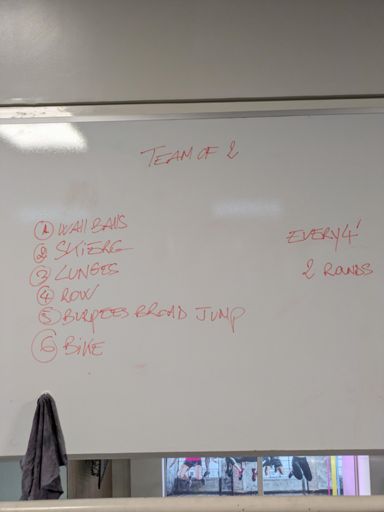 TEAM OF 2
① WALL BALLS
② SKIERG
③ LUNGES
④ ROW
⑤ BURPEES BROAD JUMP
⑥ BIKE
EVERY 4'
2 ROUNDS